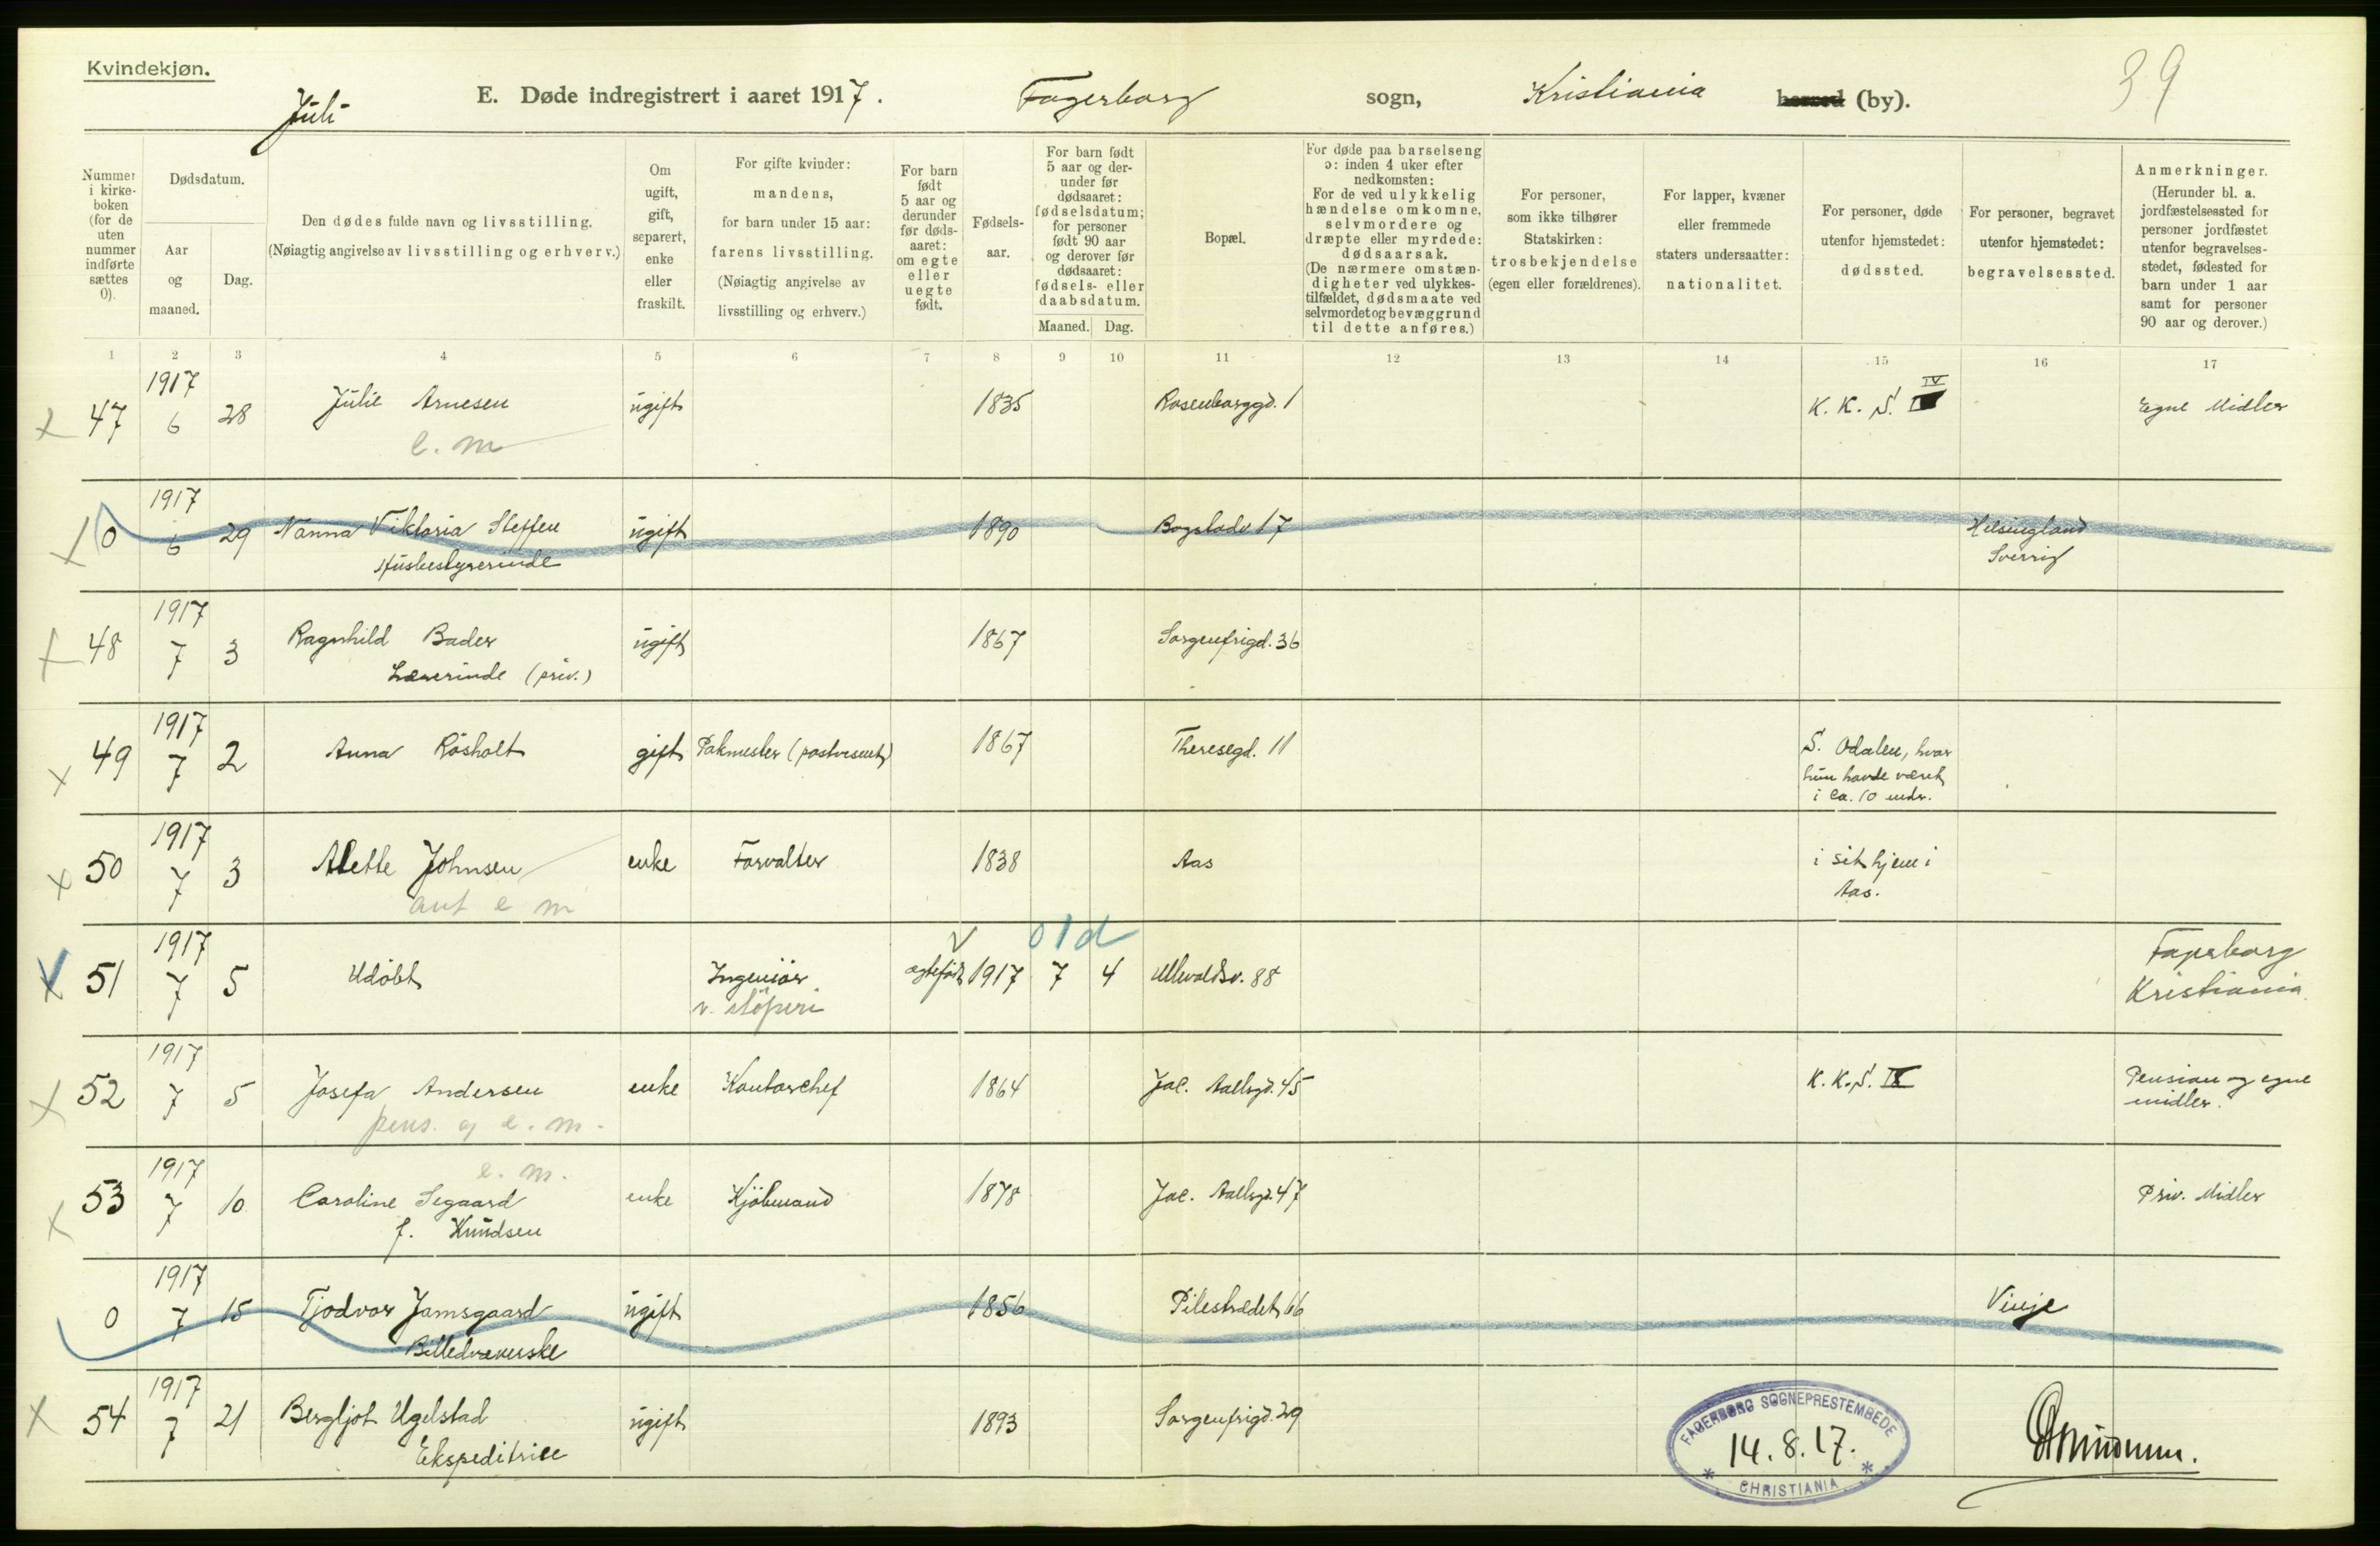 Kvindekjøn.
39
Juli
E. Døde indregistrert i aaret 1917.
Fagerborg
sogn,
Kristiania
herred (by).
Nummer i kirkeboken (for de uten nummer indførte sættes 0).
Dødsdatum.
Aar og maaned.
Dag.
Den dødes fulde navn og livsstilling.
(Nøiagtig angivelse av livsstilling og erhverv.)
Om ugift, gift, separert, enke eller fraskilt.
For gifte kvinder:
mandens,
for barn under 15 aar:
farens livsstilling.
(Nøiagtig angivelse av
livsstilling og erhverv.)
For barn født 5 aar og derunder før dødsaaret: om egte eller uegte født.
Fødsels-
aar.
For barn født
5 aar og der-
under før
dødsaaret:
fødselsdatum;
for personer
født 90 aar
og derover før
dødsaaret:
fødsels- eller
daabsdatum.
Maaned. Dag.
Bopæl.
For døde paa barselseng
ɔ: inden 4 uker efter
nedkomsten:
For de ved ulykkelig
hændelse omkomne,
selvmordere og
dræpte eller myrdede:
dødsaarsak.
(De nærmere omstæn-
digheter ved ulykkes-
tilfældet, dødsmaate ved
selvmordet og bevæggrund
til dette anføres.)
For personer,
som ikke tilhører
Statskirken:
trosbekjendelse
(egen eller forældrenes).
For lapper, kvæner
eller fremmede
staters undersaatter:
nationalitet.
For personer, døde
utenfor hjemstedet:
dødssted.
For personer, begravet
utenfor hjemstedet:
begravelsessted.
Anmerkninger.
(Herunder bl. a.
jordfæstelsessted for
personer jordfæstet
utenfor begravelses-
stedet, fødested for
barn under 1 aar
samt for personer
90 aar og derover.)
1 2 3 4 5 6 7 8 9 10 11 12 13 14 15 16 17
1917
47 6 28 Julie Arnesen ugift 1835 Rosenborggd. 1 K. K. S. IV Egne Midler
e. m
1917
0 6 29 Nanna Viktoria Steffen ugift 1890 Bogstadv 17 Helsingland
Husbestyrerinde Sverrig
1917
48 7 3 Ragnhild Bader ugift 1867 Sorgenfrigd. 36
Lærerinde (priv.)
1917
49 7 2 Anna Rösholt gift Pakmester (postvesenet) 1867 Theresegd. 11 S. Odalen, hvor
hun havde været
i ca. 10 mdr.
1917
50 7 3 Alette Johnsen enke Forvalter 1838 Aas i sit hjem i
Aas.
ant e m
1917
old
51 7 5 Udöbt Ingeniör egtefödt 1917 7 4 Ullevoldsv. 88 Fagerborg
v. støperi Kristiania
1917
52 7 5 Josefa Andersen enke Kontorchef 1864 Jac. Aallsgd. 45 K. K. S. IX Pension og egne
midler.
pens. og e. m.
1917 e. m.
53 7 10 Caroline Segaard enke Kjöbmand 1878 Jac. Aallsgd. 47 Priv. Midler
f. Knudsen
1917
0 7 15 Tjodvor Jamsgaard ugift 1856 Pilestrædet 66 Vinje
Billedvæverske
1917
54 7 21 Bergljot Ugelstad ugift 1893 Sorgenfrigd. 29
Ekspeditrice
FAGERBORG SOGNEPRESTEMBEDE
14.8.17.
* CHRISTIANIA *